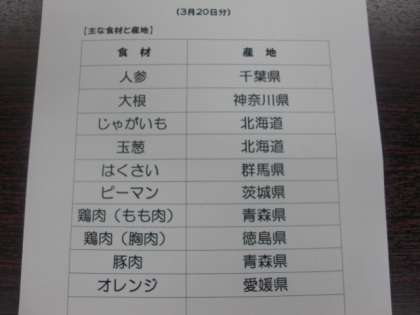 (3月20日分)
【主な食材と産地】
食材 産地
人参 千葉県
大根 神奈川県
じゃがいも 北海道
玉葱 北海道
はくさい 群馬県
ピーマン 茨城県
鶏肉（もも肉） 青森県
鶏肉（胸肉） 徳島県
豚肉 青森県
オレンジ 愛媛県